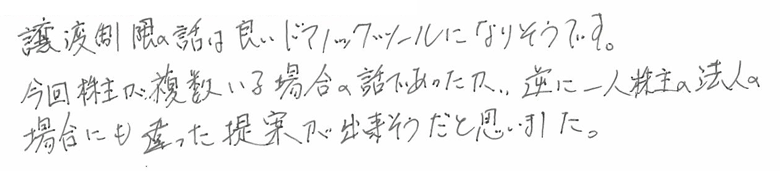 譲渡制限の話は良いドアノックツールになりそうです。
今回株主が複数いる場合の話であったが、逆に一人株主の法人の
場合にも違った提案が出来そうだと思いました。